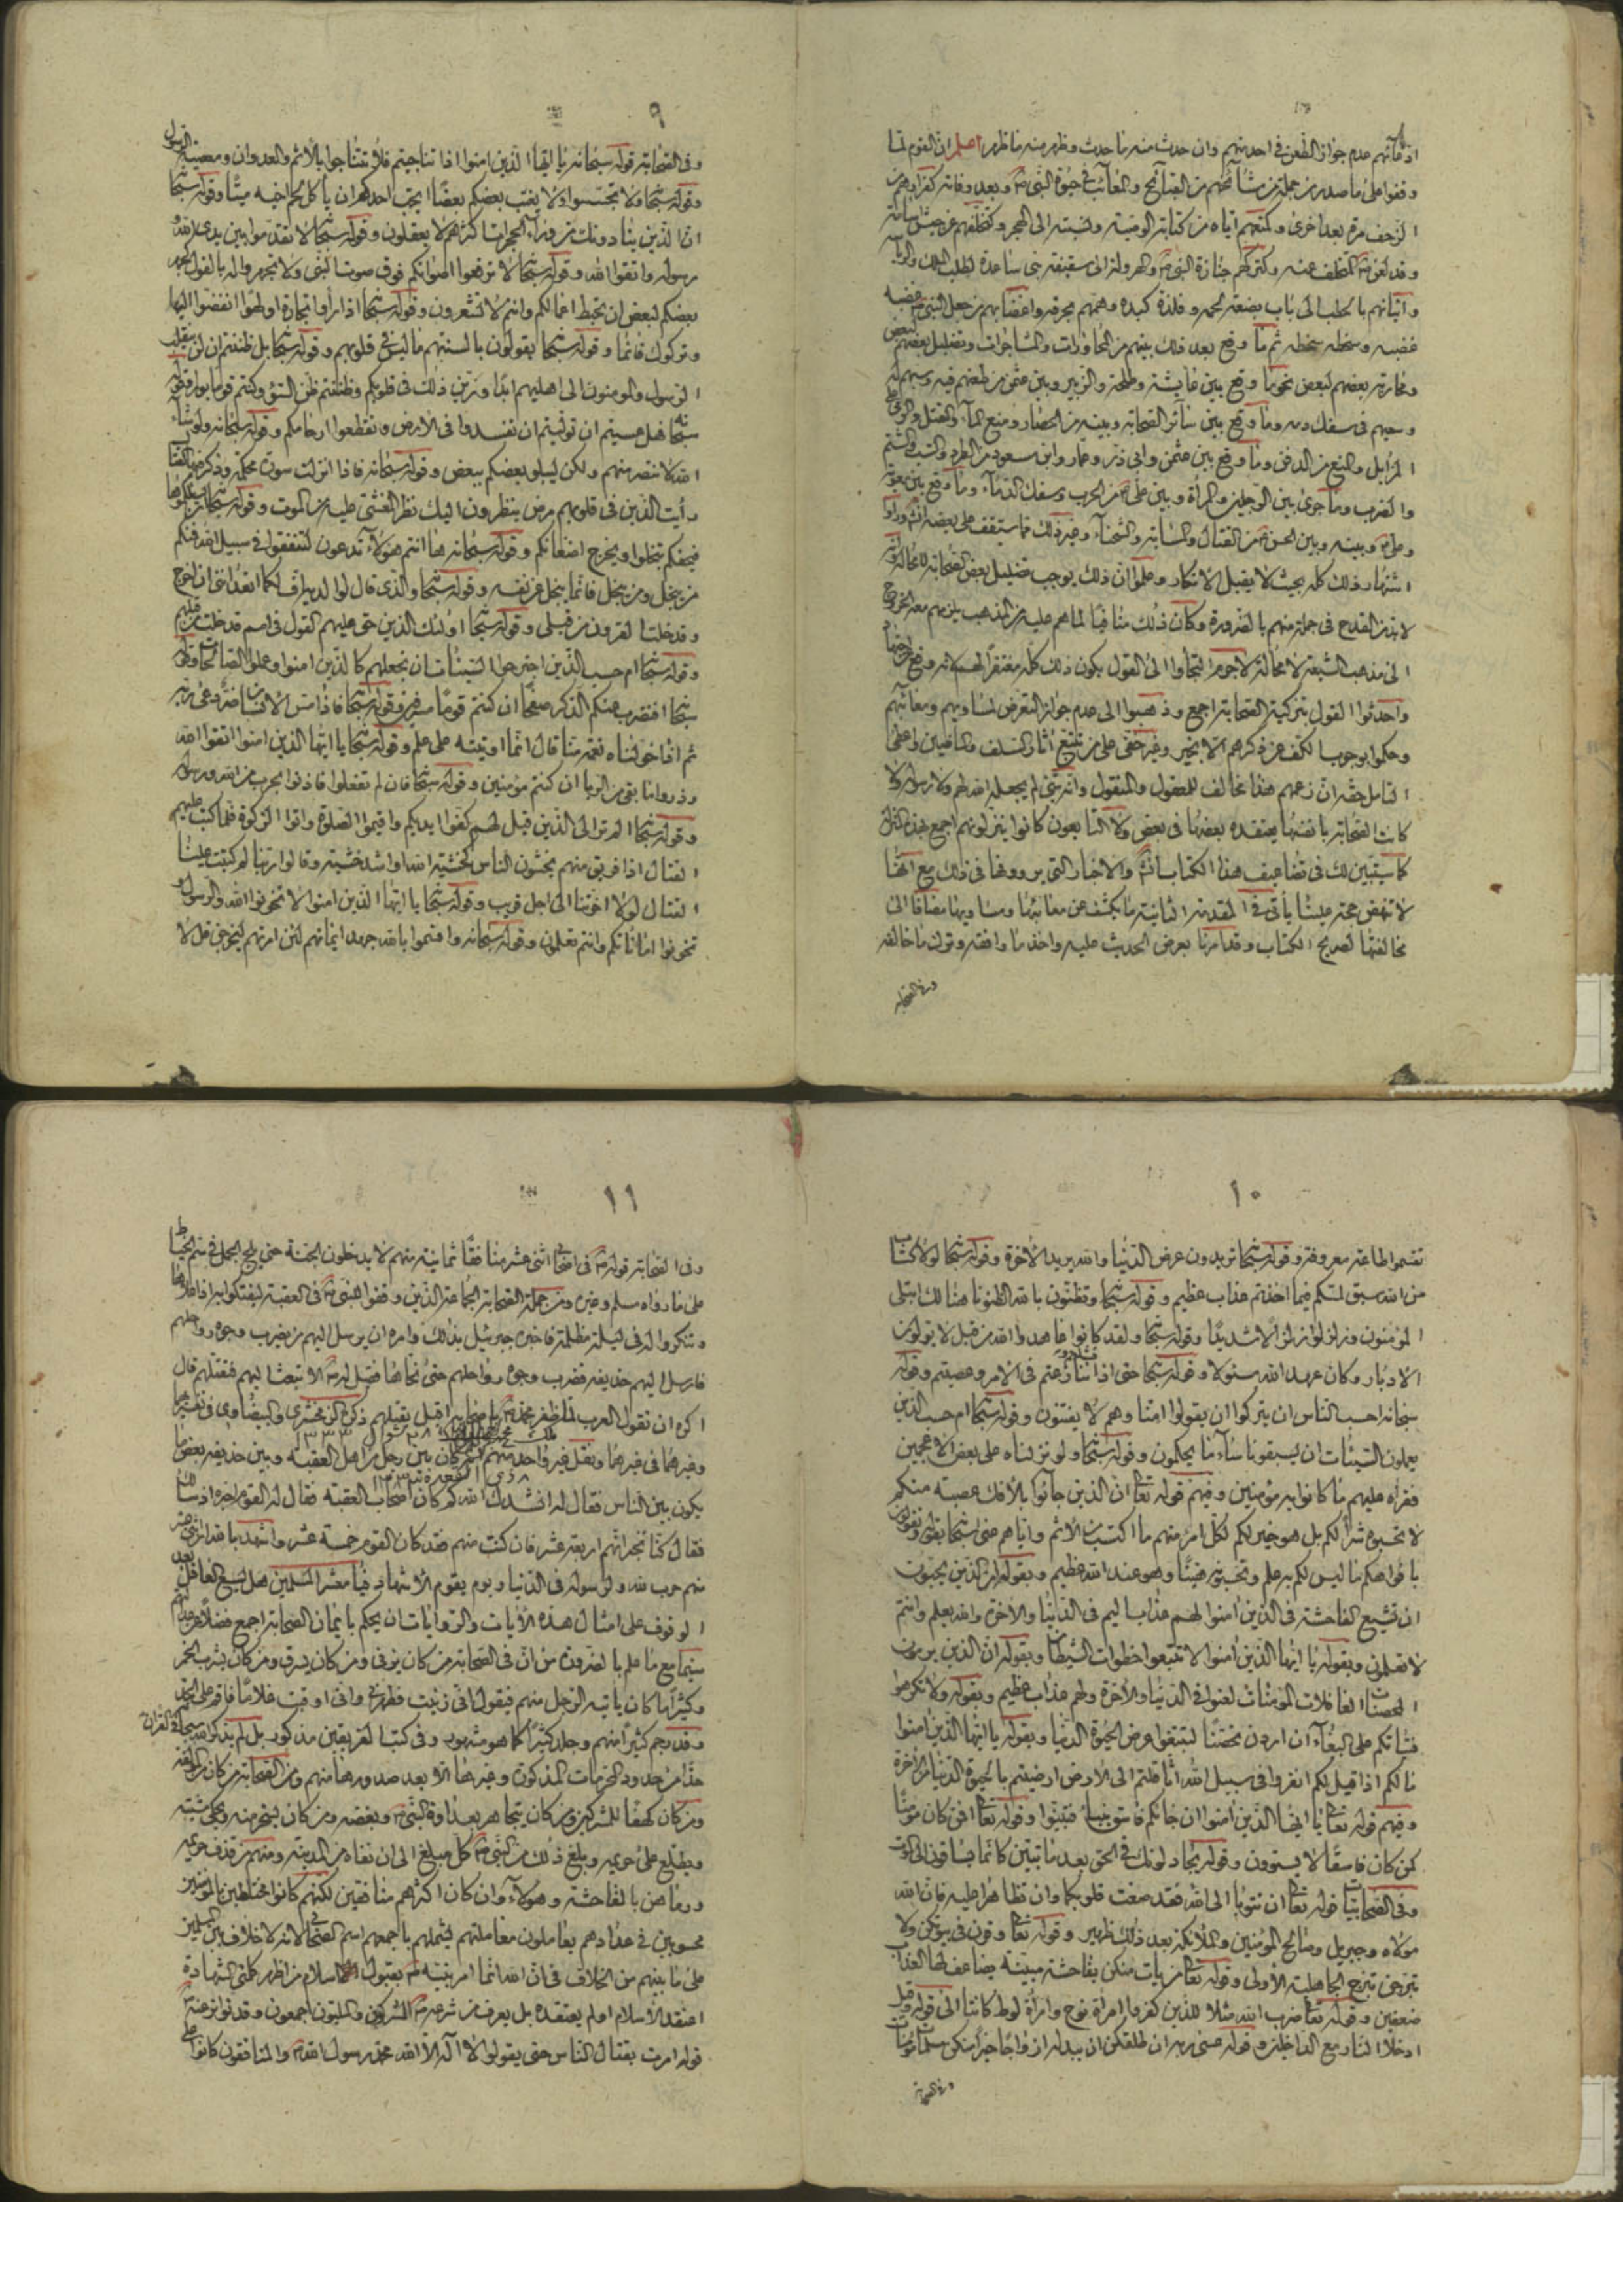 ادعائهم عدم جواز الطعن في احد منهم وان حدث منه ما حدث وظهر منه ما ظهر اعلم ان القوم لما
وقفوا على ما صدر من جملة من مشائخهم من القبائح والمعائب في حيوة النبي ص وبعد وفاته كفرارهم من
الزحف مرة بعد اخرى ومنعهم اياه من كتابة الوصية ونسبته الى الهجر وتخلفهم عن جيش اسامة
وقد لعن ص المتخلف عنه وتركهم جنازة النبي ص وهرولتهم الى سقيفة بني ساعدة لطلب الملك والرياسة
واتيانهم بالحطب الى باب بضعة لحمه وفلذة كبده وهمهم بحرقه واغضابهم من جعل النبي ص غضبه
غضبه وسخطه سخطه ثم ما وقع بعد ذلك بينهم من المحاورات والمشاجرات وتضليل بعضهم لبعض
ومحاربة بعضهم لبعض نحو ما وقع بين عايشة وطلحة والزبير وبين عثمن من طعنهم فيه وسبهم له
وسعيهم في سفك دمه وما وقع بين سائر الصحابة وبينه من الحصار ومنع الماء والقتل والرمي على
المزابل والمنع من الدفن وما وقع بين عثمن وابي ذر وعمار وابن مسعود من الطرد والسب والشتم
والضرب وما جرى بين الرجلين والمرأة وبين علي ع من الحرب وسفك الدماء وما وقع بين معوية
وعلي ع وبينه وبين الحسن ع من القتال والمسابة والشحناء وغير ذلك مما ستقف على بعضه انش وراوا
اشتهار ذلك كله بحيث لا يقبل الانكار وعلموا ان ذلك يوجب تضليل بعض الصحابة لا محالة وانه
لا بد من القدح في جملة منهم بالضرورة وكان ذلك منافيا لما هم عليه من المذهب يلزمهم معه الخروج
الى مذهب الشيعة لا محالة لا جرم التجاوا الى القول بكون ذلك كله مغتفرا لهم لانه وقع اجتهادا
واحدثوا القول بتزكية الصحابة اجمع وذهبوا الى عدم جواز التعرض لمساويهم ومعائبهم
وحكموا بوجوب الكف عن ذكرهم الا بخير وغير خفي على من تتبع اثار السلف والتابعين واعطى
التامل حقه ان زعمهم هذا مخالف للمعقول والمنقول وانه شئ لم يجعله الله لهم ولا رسوله ولا
كانت الصحابة بانفسها يعتقده بعضها في بعض ولا التابعون كانوا ينزلونهم اجمع بهذه المنزلة
كما سيتبين لك في تضاعيف هذا الكتاب انش والاخبار التي يروونها في ذلك مع انها
لا تنهض حجة علينا ياتي في المقدمة الثانية ما يكشف عن معائبها ومساويها مضافا الى
مخالفتها لصريح الكتاب وقد امرنا بعرض الحديث عليه واخذ ما وافقه وترك ما خالفه
وفي الصحابة
٩
وفي الصحابة قوله سبحانه يا ايها الذين امنوا اذا تناجيتم فلا تتناجوا بالاثم والعدوان ومعصية الرسول
وقوله سبحا ولا تجسسوا ولا يغتب بعضكم بعضا ايحب احدكم ان ياكل لحم اخيه ميتا وقوله سبحا
ان الذين ينادونك من وراء الحجرات اكثرهم لا يعقلون وقوله سبحا لا تقدموا بين يدي الله و
رسوله واتقوا الله وقوله سبحا لا ترفعوا اصواتكم فوق صوت النبي ولا تجهروا له بالقول كجهر
بعضكم لبعض ان تحبط اعمالكم وانتم لا تشعرون وقوله سبحا اذا راوا تجارة او لهوا انفضوا اليها
وتركوك قائما وقوله سبحا يقولون بالسنتهم ما ليس في قلوبهم وقوله سبحا بل ظننتم ان لن ينقلب
الرسول والمومنون الى اهليهم ابدا وزين ذلك في قلوبكم وظننتم ظن السوء وكنتم قوما بورا وقوله
سبحا فهل عسيتم ان توليتم ان تفسدوا في الارض وتقطعوا ارحامكم وقوله سبحانه ولو شاء
الله لانتصر منهم ولكن ليبلو بعضكم ببعض وقوله سبحانه فاذا انزلت سورة محكمة وذكر فيها القتال
رايت الذين في قلوبهم مرض ينظرون اليك نظر المغشي عليه من الموت وقوله سبحا ان يسئلكموها
فيحفكم تبخلوا ويخرج اضغانكم وقوله سبحانه ها انتم هؤلاء تدعون لتنفقوا في سبيل الله فمنكم
من يبخل ومن يبخل فانما يبخل عن نفسه وقوله سبحا والذي قال لوالديه اف لكما اتعدانني ان اخرج
وقد خلت القرون من قبلي وقوله سبحا اولئك الذين حق عليهم القول في امم قد خلت من قبلهم
وقوله سبحا ام حسب الذين اجترحوا السيئات ان نجعلهم كالذين امنوا وعملوا الصالحات وقوله
سبحا افنضرب عنكم الذكر صفحا ان كنتم قوما مسرفين وقوله سبحا فاذا مس الانسان ضر دعى ربه
ثم اذا خولناه نعمة منا قال انما اوتيته على علم وقوله سبحا يا ايها الذين امنوا اتقوا الله
وذروا ما بقي من الربا ان كنتم مؤمنين وقوله سبحا فان لم تفعلوا فاذنوا بحرب من الله ورسوله
وقوله سبحا الم تر الى الذين قيل لهم كفوا ايديكم واقيموا الصلوة واتوا الزكوة فلما كتب عليهم
القتال اذا فريق منهم يخشون الناس كخشية الله او اشد خشية وقالوا ربنا لم كتبت علينا
القتال لولا اخرتنا الى اجل قريب وقوله سبحا يا ايها الذين امنوا لا تخونوا الله والرسول و
تخونوا اماناتكم وانتم تعلمون وقوله سبحانه واقسموا بالله جهد ايمانهم لئن امرتهم ليخرجن قل لا
١٠
تقسموا طاعة معروفة وقوله سبحا تريدون عرض الدنيا والله يريد الاخرة وقوله سبحا لولا كتاب
من الله سبق لمسكم فيما اخذتم عذاب عظيم وقوله سبحا وتظنون بالله الظنونا هنالك ابتلي
المؤمنون وزلزلوا زلزالا شديدا وقوله سبحا ولقد كانوا عاهدوا الله من قبل لا يولون
الادبار وكان عهد الله مسئولا وقوله سبحا حتى اذا فشلتم وتنازعتم في الامر وعصيتم وقوله
سبحانه احسب الناس ان يتركوا ان يقولوا امنا وهم لا يفتنون وقوله سبحا ام حسب الذين
يعملون السيئات ان يسبقونا ساء ما يحكمون وقوله سبحا ولو نزلناه على بعض الاعجمين
فقراه عليهم ما كانوا به مؤمنين وفيهم قوله تعا ان الذين جاءوا بالافك عصبة منكم
لا تحسبوه شرا لكم بل هو خير لكم لكل امرئ منهم ما اكتسب من الاثم واياهم عنى سبحا بقوله وتقولون
بافواهكم ما ليس لكم به علم وتحسبونه هينا وهو عند الله عظيم وبقوله ان الذين يحبون
ان تشيع الفاحشة في الذين امنوا لهم عذاب اليم في الدنيا والاخرة والله يعلم وانتم
لا تعلمون وبقوله يا ايها الذين امنوا لا تتبعوا خطوات الشيطان وبقوله ان الذين يرمون
المحصنات الغافلات المؤمنات لعنوا في الدنيا والاخرة ولهم عذاب عظيم وبقوله ولا تكرهوا
فتياتكم على البغاء ان اردن تحصنا لتبتغوا عرض الحيوة الدنيا وبقوله يا ايها الذين امنوا
ما لكم اذا قيل لكم انفروا في سبيل الله اثاقلتم الى الارض ارضيتم بالحيوة الدنيا من الاخرة
وفيهم قوله تعا يا ايها الذين امنوا ان جاءكم فاسق بنبا فتبينوا وقوله تعا افمن كان مؤمنا
كمن كان فاسقا لا يستوون وقوله يجادلونك في الحق بعد ما تبين كانما يساقون الى الموت
وفي الصحابيات قوله تعا ان تتوبا الى الله فقد صغت قلوبكما وان تظاهرا عليه فان الله
موليه وجبريل وصالح المؤمنين والملائكة بعد ذلك ظهير وقوله تعا وقرن في بيوتكن ولا
تبرجن تبرج الجاهلية الاولى وقوله تعا من يات منكن بفاحشة مبينة يضاعف لها العذاب
ضعفين وقوله تعا ضرب الله مثلا للذين كفروا امراة نوح وامراة لوط كانتا الى قوله وقيل
ادخلا النار مع الداخلين وقوله عسى ربه ان طلقكن ان يبدله ازواجا خيرا منكن مسلمات مؤمنات
١١
وفي الصحابة قوله ص في اصحابي اثنى عشر منافقا ثمانية منهم لا يدخلون الجنة حتى يلج الجمل في سم الخياط
على ما رواه مسلم وغيره ومن جملة الصحابة الجماعة الذين وقفوا للنبي ص في العقبة ليفتكوا به
وتنكروا له في ليلة مظلمة فاخبره جبرئيل بذلك وامره ان يرسل اليهم من يضرب وجوه رواحلهم
فارسل اليهم حذيفة فضرب وجوه رواحلهم حتى نحاها فقيل له ص الا تبعث اليهم فتقتلهم قال
اكره ان تقول العرب لما ظفر محمد ص باصحابه اقبل يقتلهم ذكره الزمخشري والبيضاوي في تفسيرهما
وغيرهما في غيرهما ونقل غير واحد منهم كان بين رجل من اهل العقبة وبين حذيفة بعض ما
يكون بين الناس فقال له انشدك الله كم كان اصحاب العقبة فقال له القوم اخبره اذ سالك
فقال كنا نخبر انهم اربعة عشر فان كنت منهم فقد كان القوم خمسة عشر واشهد بالله ان اثني عشر
منهم حرب لله ولرسوله في الدنيا ويوم يقوم الاشهاد فيا معشر المسلمين هل يسع العاقل بعد
الوقوف على امثال هذه الايات والروايات ان يحكم بايمان الصحابة اجمع فضلا عن عدالتهم
سيما مع ما علم بالضرورة من ان في الصحابة من كان يزني ومن كان يسرق ومن كان يشرب الخمر
وكثيرا ما كان ياتيه الرجل منهم فيقول اني زنيت فطهرني واني اوقبت غلاما فاقم علي الحد
وقد رجم كثيرا منهم وجلد كثيرا كما هو مشهور وفي كتب الفريقين مذكور بل لم يذكر الله سبحا في القرآن
حدا من حدود المحرمات المذكورة وغيرها الا بعد صدورها منهم ومن الصحابة من كان
ومن كان كهفا للمشركين ومن كان يتجاهر بعداوة النبي ص وبغضه ومن كان يسخر منه ويحكي مشيته
ويطلع على حريمه وبلغ ذلك من النبي ص كل مبلغ الى ان نفاه من المدينة ومنهم من قذف حريمه
ورماهن بالفاحشة وهؤلاء وان كان اكثرهم منافقين لكنهم كانوا مختلطين بالمؤمنين
محسوبين في عدادهم يعاملون معاملتهم يشملهم باجمعهم اسم الصحابي لانه لا خلاف بين المسلمين
على ما بينهم من الخلاف في ان الله انما امر نبيه ص بقبول اسلام من اظهر كلمتي الشهادة
اعتقد الاسلام او لم يعتقده بل يعرف من شرعه ص المشركون والمليون اجمعون وقد تواتر عنه ص
قوله امرت بقتال الناس حتى يقولوا لا اله الا الله محمد رسول الله ص والمنافقون كانوا على